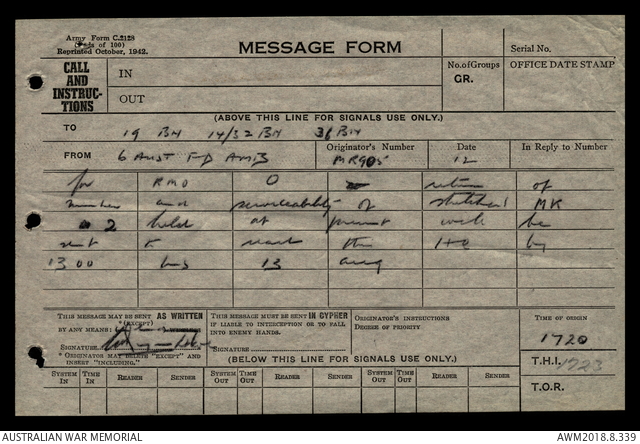 Army Form C.2128
(Pads of 100)
Reprinted October, 1942.
MESSAGE FORM
Serial No.
CALL AND INSTRUC- TIONS
IN
OUT
No. of Groups
GR.
OFFICE DATE STAMP
(ABOVE THIS LINE FOR SIGNALS USE ONLY.)
TO 19 BN 14/32 BN 36 BN
FROM 6 AUST FD AMB
Originator's Number MR905
Date 12
In Reply to Number
for RMO O return of
number and serviceability of MK
2 held at present will be
sent to reach this by
1300 hrs 13 aug
THIS MESSAGE MAY BE SENT AS WRITTEN
*(EXCEPT)
BY ANY MEANS
SIGNATURE
* ORIGINATOR MAY DELETE "EXCEPT" AND
INSERT "INCLUDING."
THIS MESSAGE MUST BE SENT IN CYPHER
IF LIABLE TO INTERCEPTION OR TO FALL
INTO ENEMY HANDS.
SIGNATURE
ORIGINATOR'S INSTRUCTIONS
DEGREE OF PRIORITY
TIME OF ORIGIN
1720
(BELOW THIS LINE FOR SIGNALS USE ONLY.)
T.H.I. 1723
SYSTEM IN TIME IN READER SENDER SYSTEM OUT TIME OUT READER SENDER SYSTEM OUT TIME OUT READER SENDER
T.O.R.
AUSTRALIAN WAR MEMORIAL
AWM2018.8.339